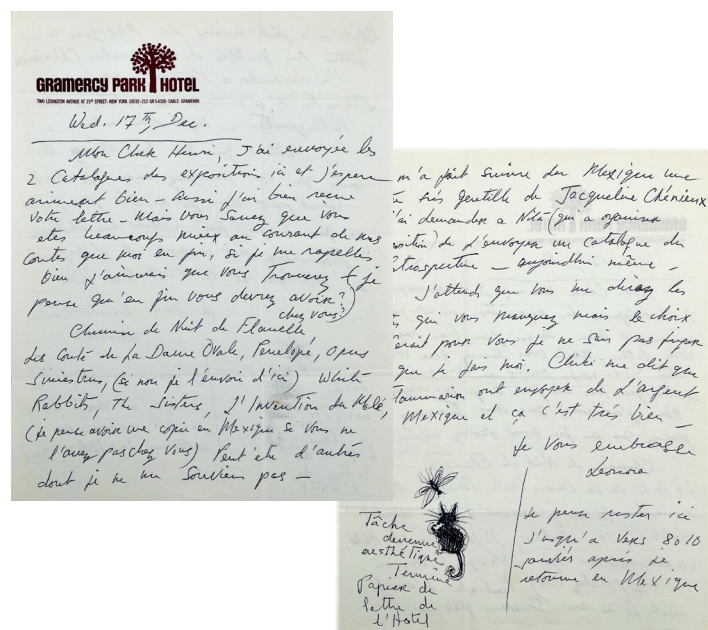 GRAMERCY PARK HOTEL
TWO LEXINGTON AVENUE AT 21ST STREET · NEW YORK 10010 · 212 GR5-4320 · CABLE GRAMPARK
Wed. 17Th, Dec.
Mon Cher Henri, J'ai envoyée les
2 Catalogues des exposition ici et j'espere
arriveront bien – Aussi j'ai bien recue
votre lettre – Mais vous savez que vous
etes beaucoups mieux au courant de mes
Contes que moi en fin, si je me rapelles
bien j'aimerais que vous Trouverez (je
pense qu'en fin vous devrez avoir?)
chez vous?
Chemise de Nuit de Flanelle
Les Conte de La Dame Ovale, Penelope, Opus
Siniestrus, (si non je l'envoie d'ici) White
Rabbits, The Sisters, L'Invention du Molé,
(je pense avoir une copie en Mexique se vous ne
l'avez pas chez vous) Peut'etre d'autres
dont je ne me souviens pas –
m'a fait suivre du Mexique une
très gentille de Jacqueline Chénieux
j'ai demander a (qui a organiser
) de L'envoyer un catalogue du
trospective – aujourdhui même –
J'attends que vous me direz les
qui vous manquez mais le choix
serait pour vous je ne suis pas juger
que je fais moi. Chiki me dit que
Flammarion ont envoyer de L'argent
Mexique et ça c'est très bien –
Je vous embrasse
Leonora
Tâche
devenue
aesthétique
Terminé
Papier de
lettre de
l'Hotel
Je pense rester ici
J'usqu'a vers 8 o 10
janvier après je
retourne en Mexique